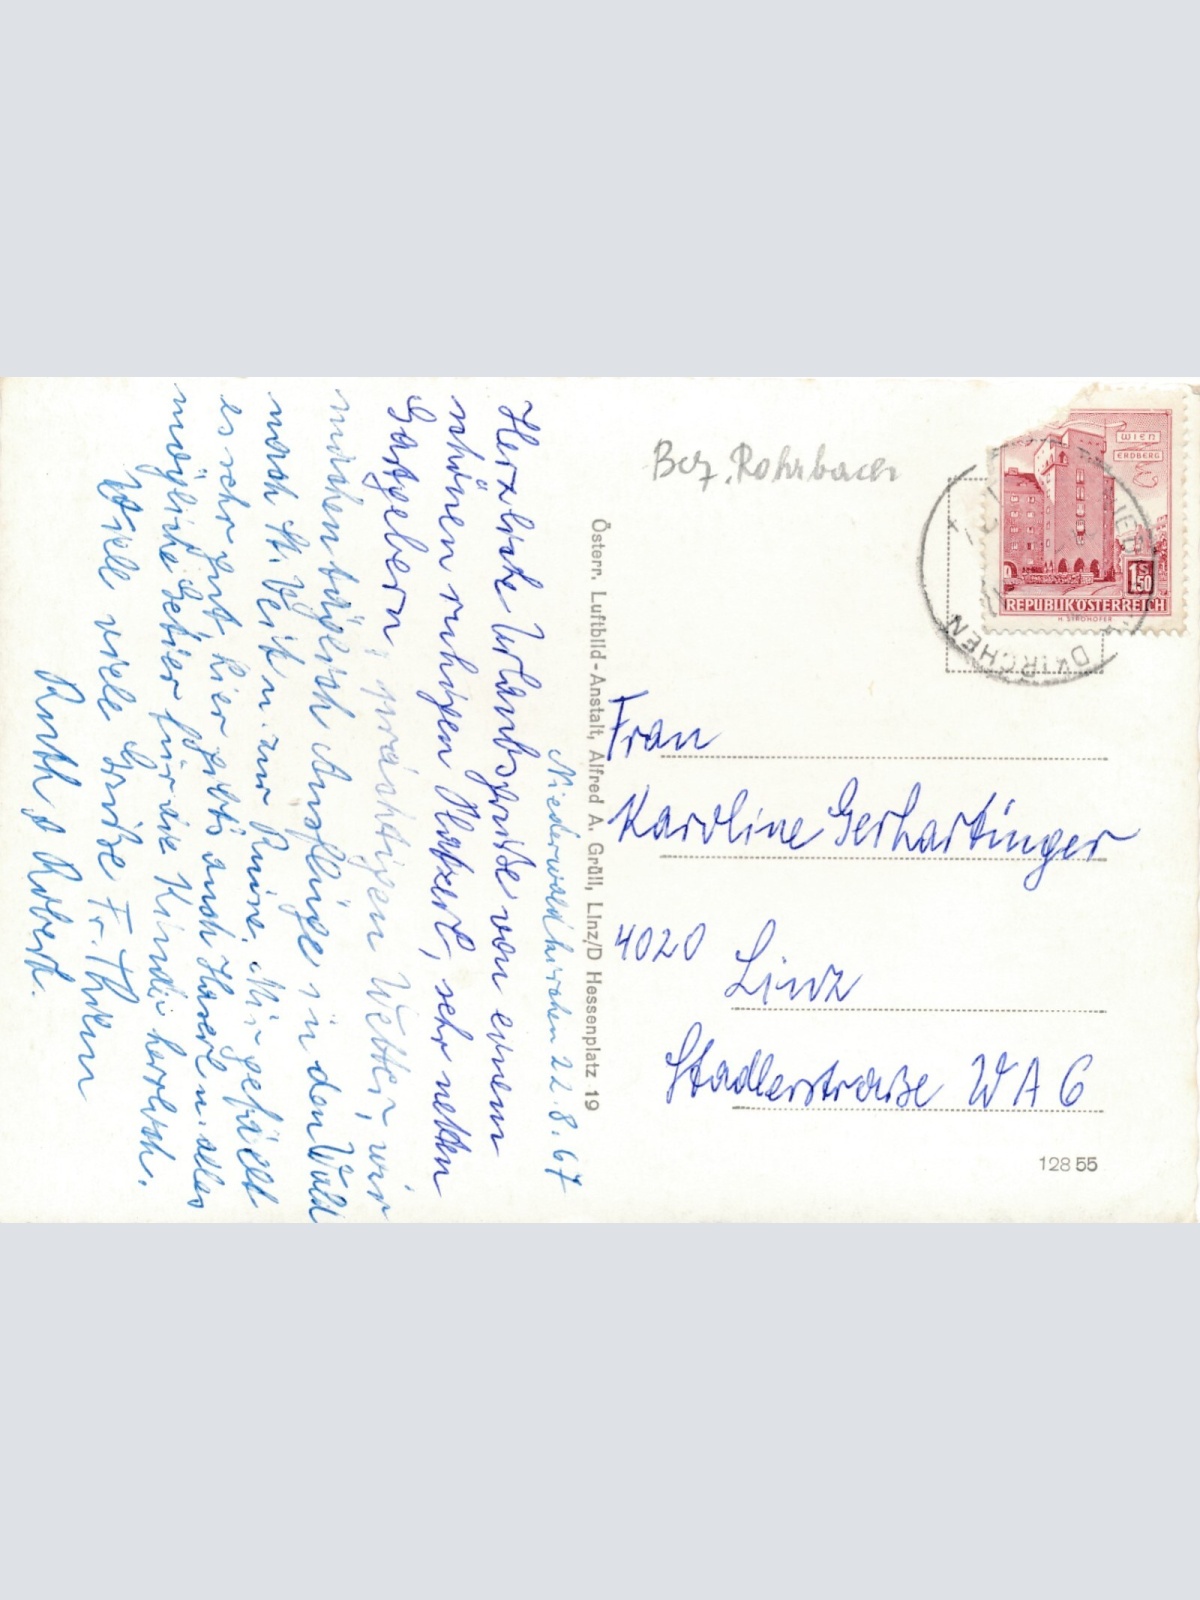 Niederwaldkirchen 22.8.67
Herzliche Urlaubsgrüße von einem
schönen ruhigen Platzerl, sehr netten
Gastgebern, prächtigen Wetter, wir
machen täglich Ausflüge in den Wald
nach St. Veit u. zur Ruine. Mir gefällt
es sehr gut hier gibts auch Haserl u. alles
mögliche Getier für die Kinder herrlich.
Viele viele Grüße Fr.
Ruth & Robert.
Österr. Luftbild-Anstalt, Alfred A. Grüll, Linz/D Hessenplatz 19
Bez. Rohrbach
WIEN
ERDBERG
1S50
REPUBLIK ÖSTERREICH
H. STROHOFER
Frau
Karoline Gerhartinger
4020 Linz
Stadlerstraße WA 6
128 55